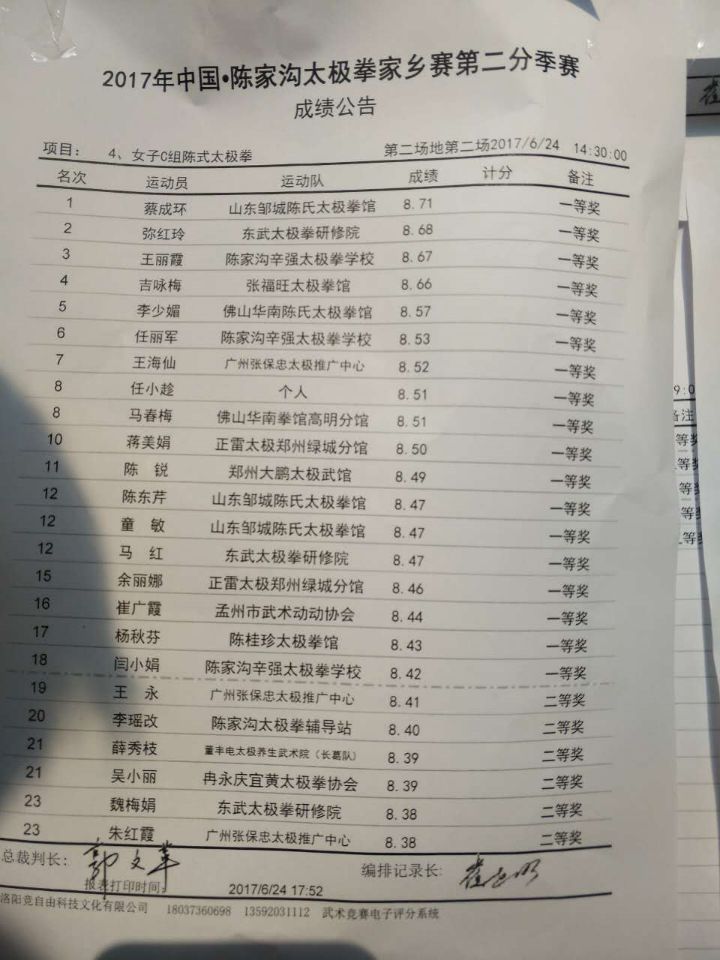 2017年中国•陈家沟太极拳家乡赛第二分季赛
成绩公告
项目: 4、女子C组陈式太极拳 第二场地第二场2017/6/24 14:30:00
名次 运动员 运动队 成绩 计分 备注
1 蔡成环 山东邹城陈氏太极拳馆 8.71 一等奖
2 弥红玲 东武太极拳研修院 8.68 一等奖
3 王丽霞 陈家沟辛强太极拳学校 8.67 一等奖
4 吉咏梅 张福旺太极拳馆 8.66 一等奖
5 李少媚 佛山华南陈氏太极拳馆 8.57 一等奖
6 任丽军 陈家沟辛强太极拳学校 8.53 一等奖
7 王海仙 广州张保忠太极推广中心 8.52 一等奖
8 任小趁 个人 8.51 一等奖
8 马春梅 佛山华南拳馆高明分馆 8.51 一等奖
10 蒋美娟 正雷太极郑州绿城分馆 8.50 一等奖
11 陈 锐 郑州大鹏太极武馆 8.49 一等奖
12 陈东芹 山东邹城陈氏太极拳馆 8.47 一等奖
12 童 敏 山东邹城陈氏太极拳馆 8.47 一等奖
12 马 红 东武太极拳研修院 8.47 一等奖
15 余丽娜 正雷太极郑州绿城分馆 8.46 一等奖
16 崔广霞 孟州市武术动动协会 8.44 一等奖
17 杨秋芬 陈桂珍太极拳馆 8.43 一等奖
18 闫小娟 陈家沟辛强太极拳学校 8.42 一等奖
19 王 永 广州张保忠太极推广中心 8.41 二等奖
20 李瑶改 陈家沟太极拳辅导站 8.40 二等奖
21 薛秀枝 董丰电太极养生武术院（长葛队） 8.39 二等奖
21 吴小丽 冉永庆宜黄太极拳协会 8.39 二等奖
23 魏梅娟 东武太极拳研修院 8.38 二等奖
23 朱红霞 广州张保忠太极推广中心 8.38 二等奖
总裁判长: 编排记录长:
报表打印时间: 2017/6/24 17:52
洛阳竞自由科技文化有限公司 18037360698 13592031112 武术竞赛电子评分系统
备注
等奖
等奖
等奖
等奖